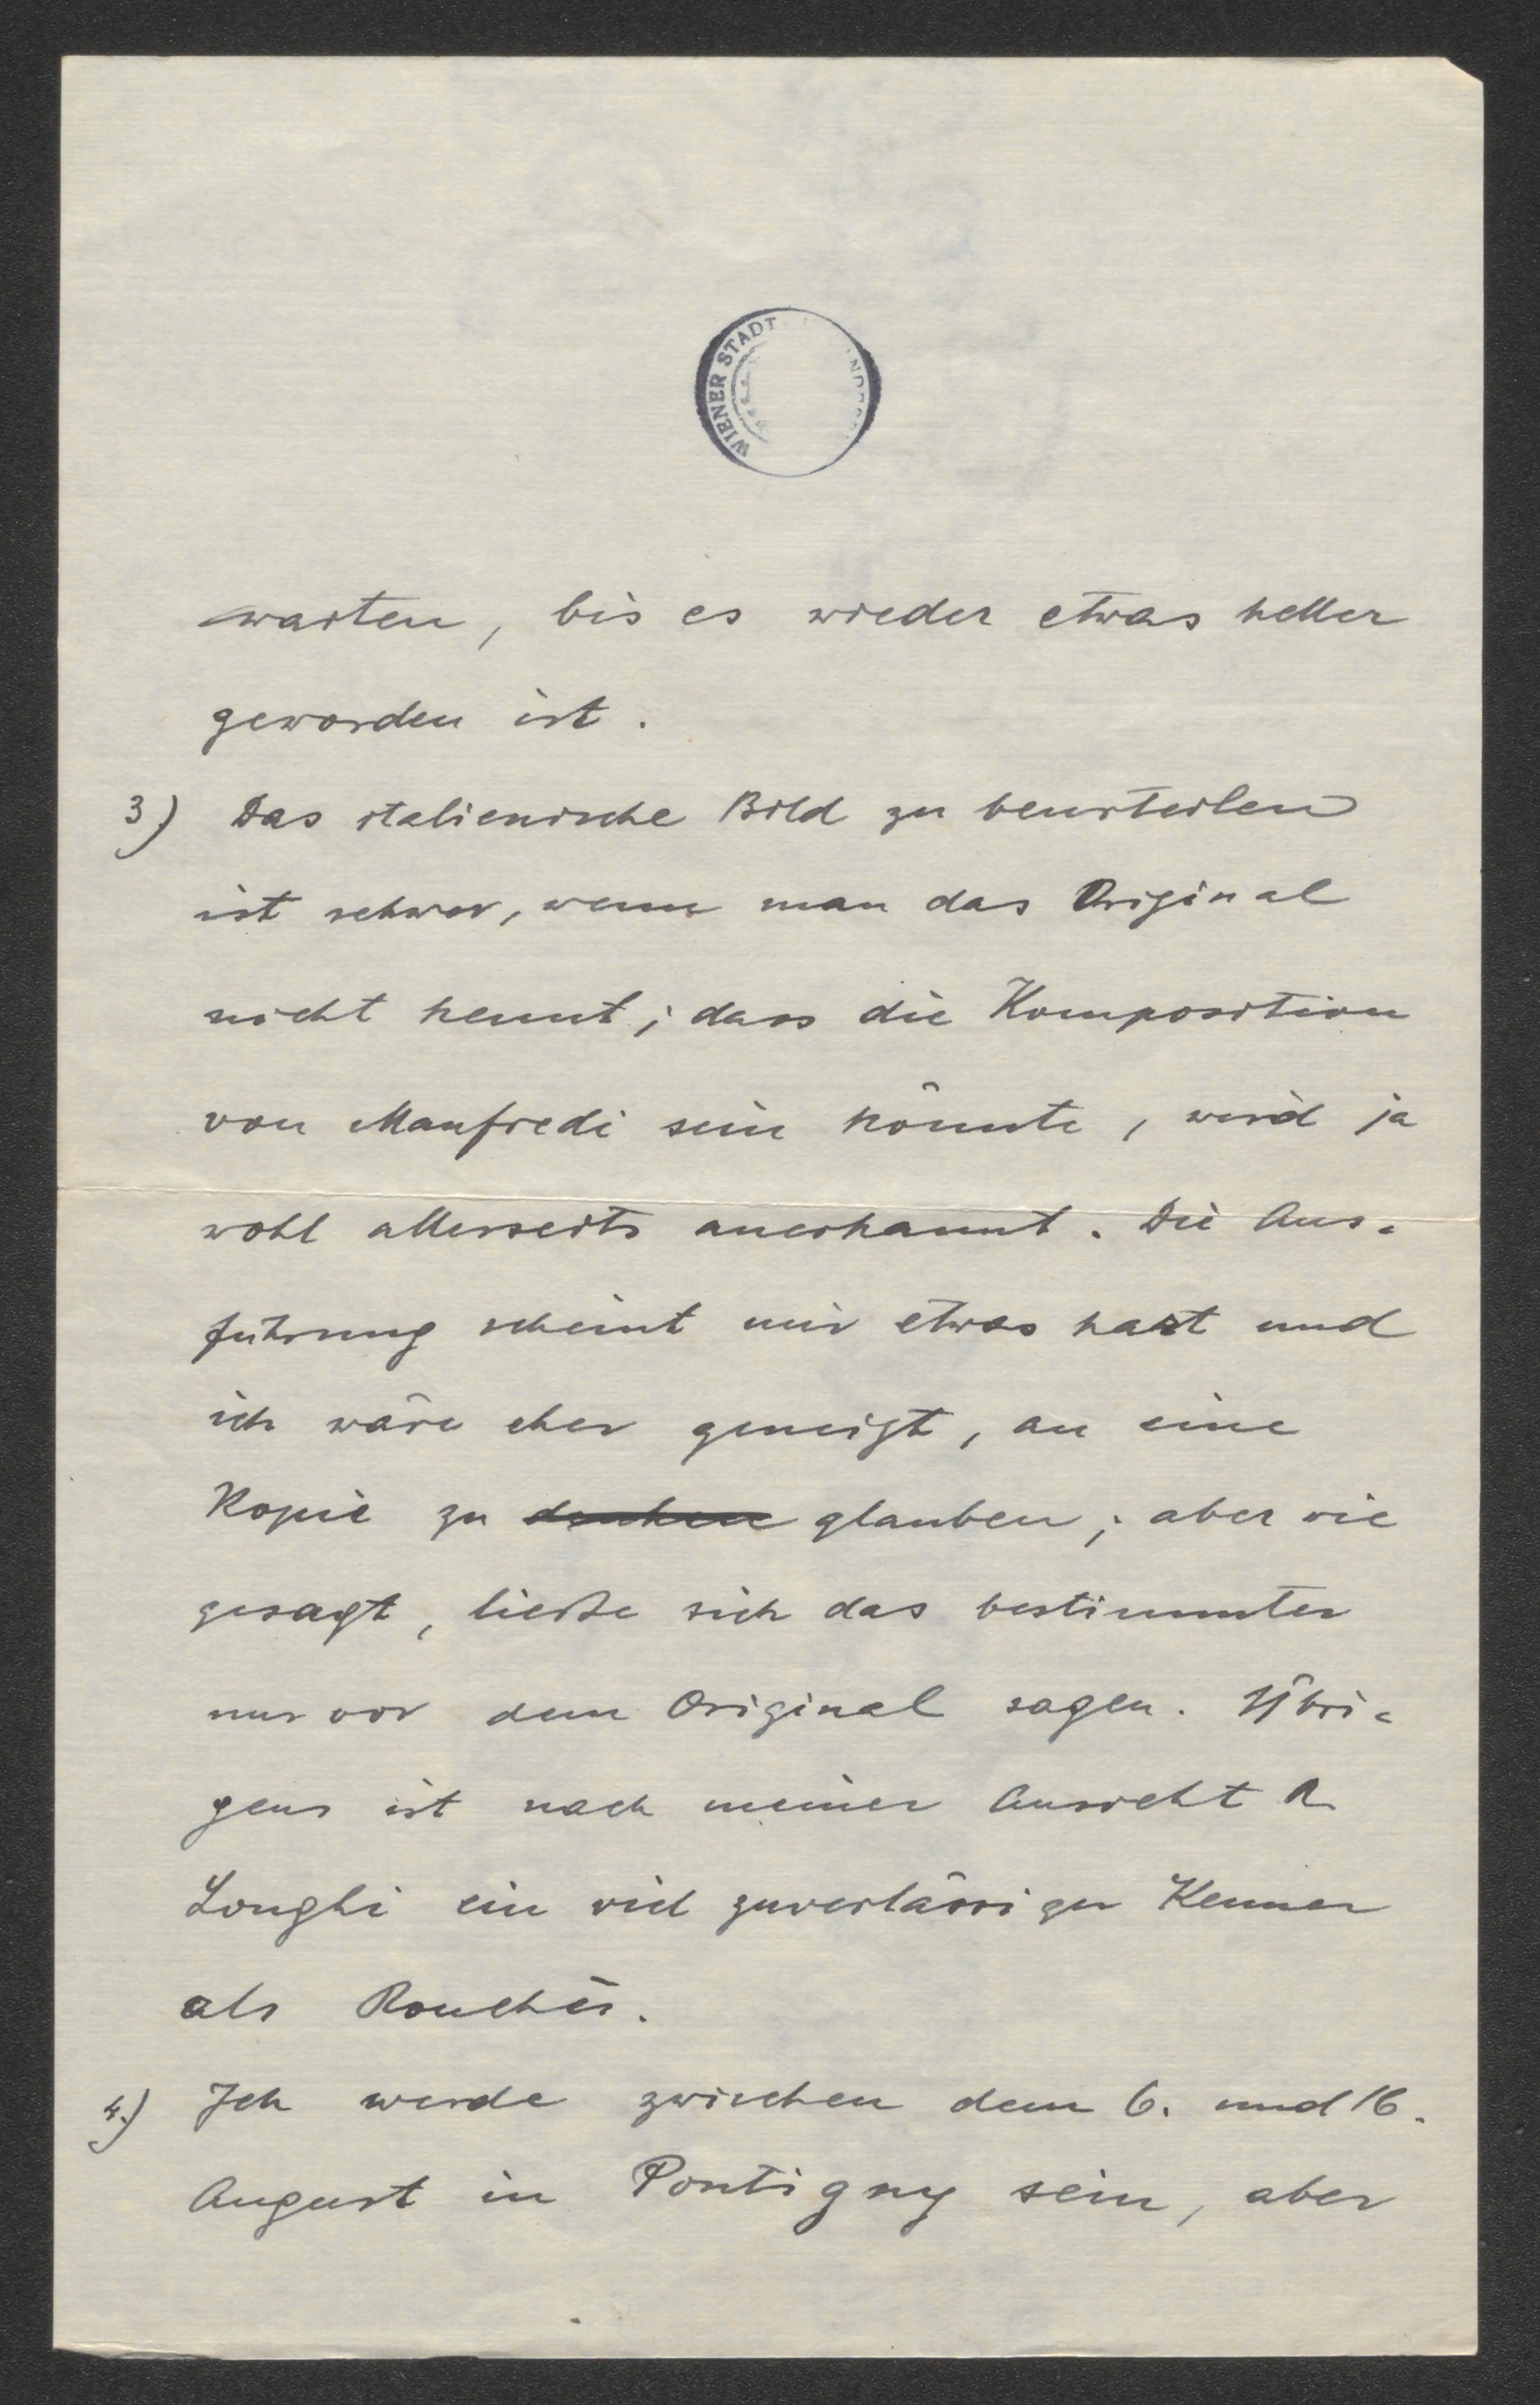 WIENER STADT
warten, bis es wieder etwas heller
geworden ist.
3) Das italienische Bild zu beurteilen
ist schwer, wenn man das Original
nicht kennt; dass die Komposition
von Manfredi sein könnte, wird ja
wohl allerseits anerkannt. Die Aus-
führung scheint mir etwas hart und
ich wäre eher geneigt, an eine
Kopie zu denken glauben; aber wie
gesagt, ließe sich das bestimmter
nur vor dem Original sagen. Übri-
gens ist nach meiner Ansicht R.
Longhi ein viel zuverlässiger Kenner
als Rouchès.
4.) Ich werde zwischen dem 6. und 16.
August in Pontigny sein, aber